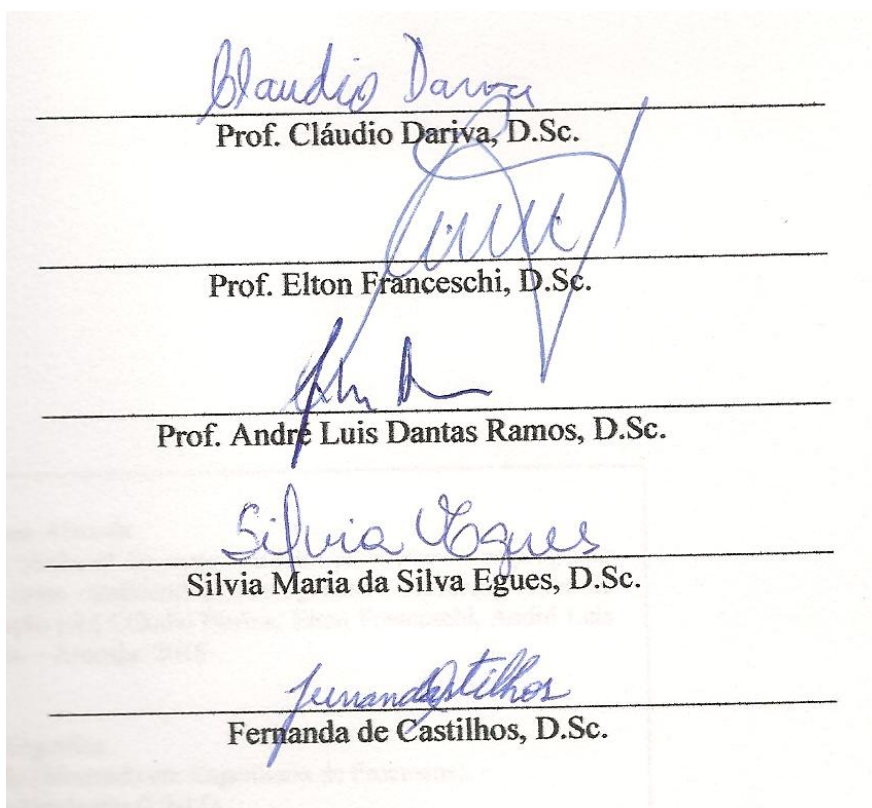 Claudio Dariva
Prof. Cláudio Dariva, D.Sc.
Prof. Elton Franceschi, D.Sc.
Prof. André Luis Dantas Ramos, D.Sc.
Silvia Egues
Silvia Maria da Silva Egues, D.Sc.
Fernanda Castilhos
Fernanda de Castilhos, D.Sc.